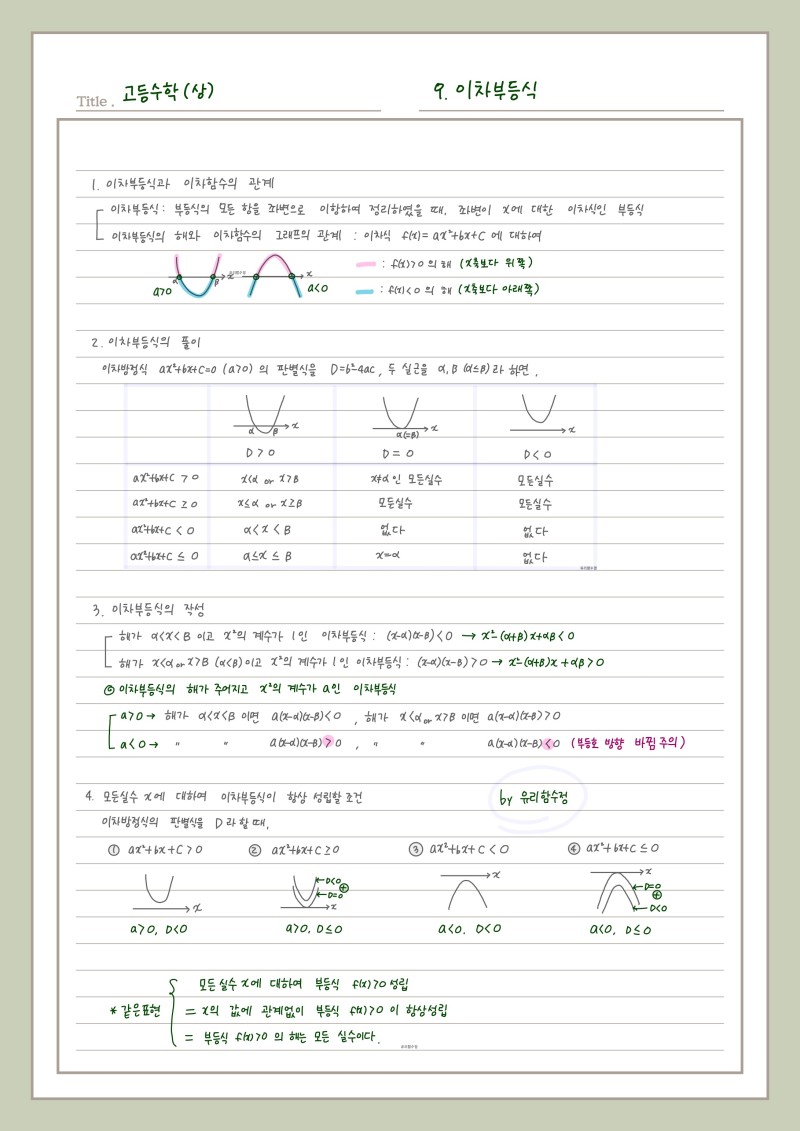 Title . 고등수학(상) 9. 이차부등식
1. 이차부등식과 이차함수의 관계
이차부등식 : 부등식의 모든 항을 좌변으로 이항하여 정리하였을 때, 좌변이 x에 대한 이차식인 부등식
이차부등식의 해와 이차함수의 그래프의 관계 : 이차식 f(x) = ax²+bx+c 에 대하여
a>0 α β x x a<0
: f(x)>0 의 해 (x축보다 위쪽)
: f(x)<0 의 해 (x축보다 아래쪽)
2. 이차부등식의 풀이
이차방정식 ax²+bx+c=0 (a>0) 의 판별식을 D=b²-4ac, 두 실근을 α, β (α≤β)라 하면,
α β x α(=β) x x
D > 0 D = 0 D < 0
ax²+bx+c > 0 x<α or x>β x≠α 인 모든실수 모든실수
ax²+bx+c ≥ 0 x≤α or x≥β 모든실수 모든실수
ax²+bx+c < 0 α<x<β 없다 없다
ax²+bx+c ≤ 0 α≤x≤β x=α 없다
유리함수정
3. 이차부등식의 작성
해가 α<x<β 이고 x²의 계수가 1인 이차부등식 : (x-α)(x-β)<0 → x²-(α+β)x+αβ<0
해가 x<α or x>β (α<β)이고 x²의 계수가 1인 이차부등식 : (x-α)(x-β)>0 → x²-(α+β)x+αβ>0
◎ 이차부등식의 해가 주어지고 x²의 계수가 a인 이차부등식
a>0 → 해가 α<x<β 이면 a(x-α)(x-β)<0 , 해가 x<α or x>β 이면 a(x-α)(x-β)>0
a<0 → " " a(x-α)(x-β)>0 , " " a(x-α)(x-β)<0 (부등호 방향 바뀜 주의)
4. 모든실수 x에 대하여 이차부등식이 항상 성립할 조건
by 유리함수정
이차방정식의 판별식을 D 라 할 때,
① ax²+bx+c>0 ② ax²+bx+c≥0 ③ ax²+bx+c<0 ④ ax²+bx+c≤0
x ←D<0 ←D=0 + x x x ←D=0 + ←D<0
a>0, D<0 a>0, D≤0 a<0, D<0 a<0, D≤0
모든실수 x에 대하여 부등식 f(x)>0 성립
* 같은표현 = x의 값에 관계없이 부등식 f(x)>0 이 항상성립
= 부등식 f(x)>0 의 해는 모든 실수이다.
유리함수정